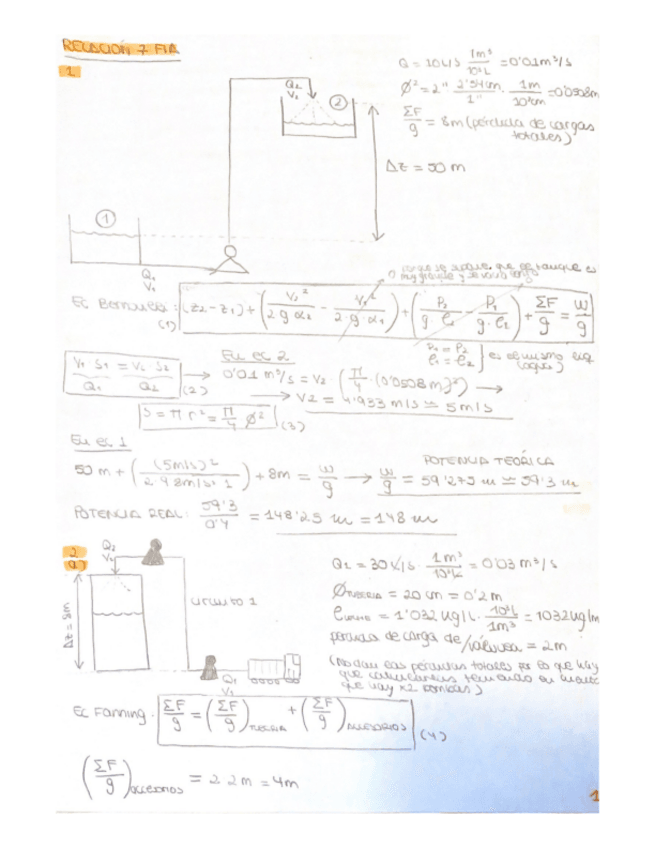 RELACIÓN 7 FIA
1.
Q = 10 L/s · 1m³/10³L = 0'01 m³/s
Ø² = 2" · 2'54cm/1" · 1m/10²cm = 0'0508m
ΣF/g = 8m (pérdida de cargas totales)
Δz = 50 m
Q₂
V₂
②
①
Q₁
V₁
Ec Bernoulli: (z₂-z₁) + (V₂²/2·g·α₂ - V₁²/2·g·α₁) + (P₂/g·ρ₂ - P₁/g·ρ₂) + ΣF/g = W/g
(1)
0 porque se supone que el tanque es muy grande y
P₁ = P₂
ρ₁ = ρ₂
es el mismo liq (agua)
V₁ · S₁ = V₂ · S₂
Q₁ Q₂
(2)
En ec 2
0'01 m³/s = V₂ · (π/4 · (0'0508 m)²) →
→ V₂ = 4'933 m/s ≃ 5m/s
S = π r² = π/4 Ø² (3)
En ec 1
50 m + ((5m/s)²/2·9'8m/s²·1) + 8m = W/g → W/g = 59'275 m ≃ 59'3 m
POTENCIA TEÓRICA
POTENCIA REAL: 59'3/0'4 = 148'25 m = 148 m
2
a)
Q₂
V₂
Δz = 8m
circuito 1
Q₁
V₁
Q₁ = 30 L/s · 1m³/10³L = 0'03 m³/s
Ø tubería = 20 cm = 0'2 m
= 1'032 kg/L · 10³L/1m³ = 1032 kg/m
pérdida de carga de válvula = 2m
(No dan las pérdidas totales por lo que hay
que calcularlas teniendo en
que hay x2 bombas)
Ec Fanning: ΣF/g = (ΣF/g) tubería + (ΣF/g) accesorios (4)
(ΣF/g) accesorios = 2·2m = 4m
1